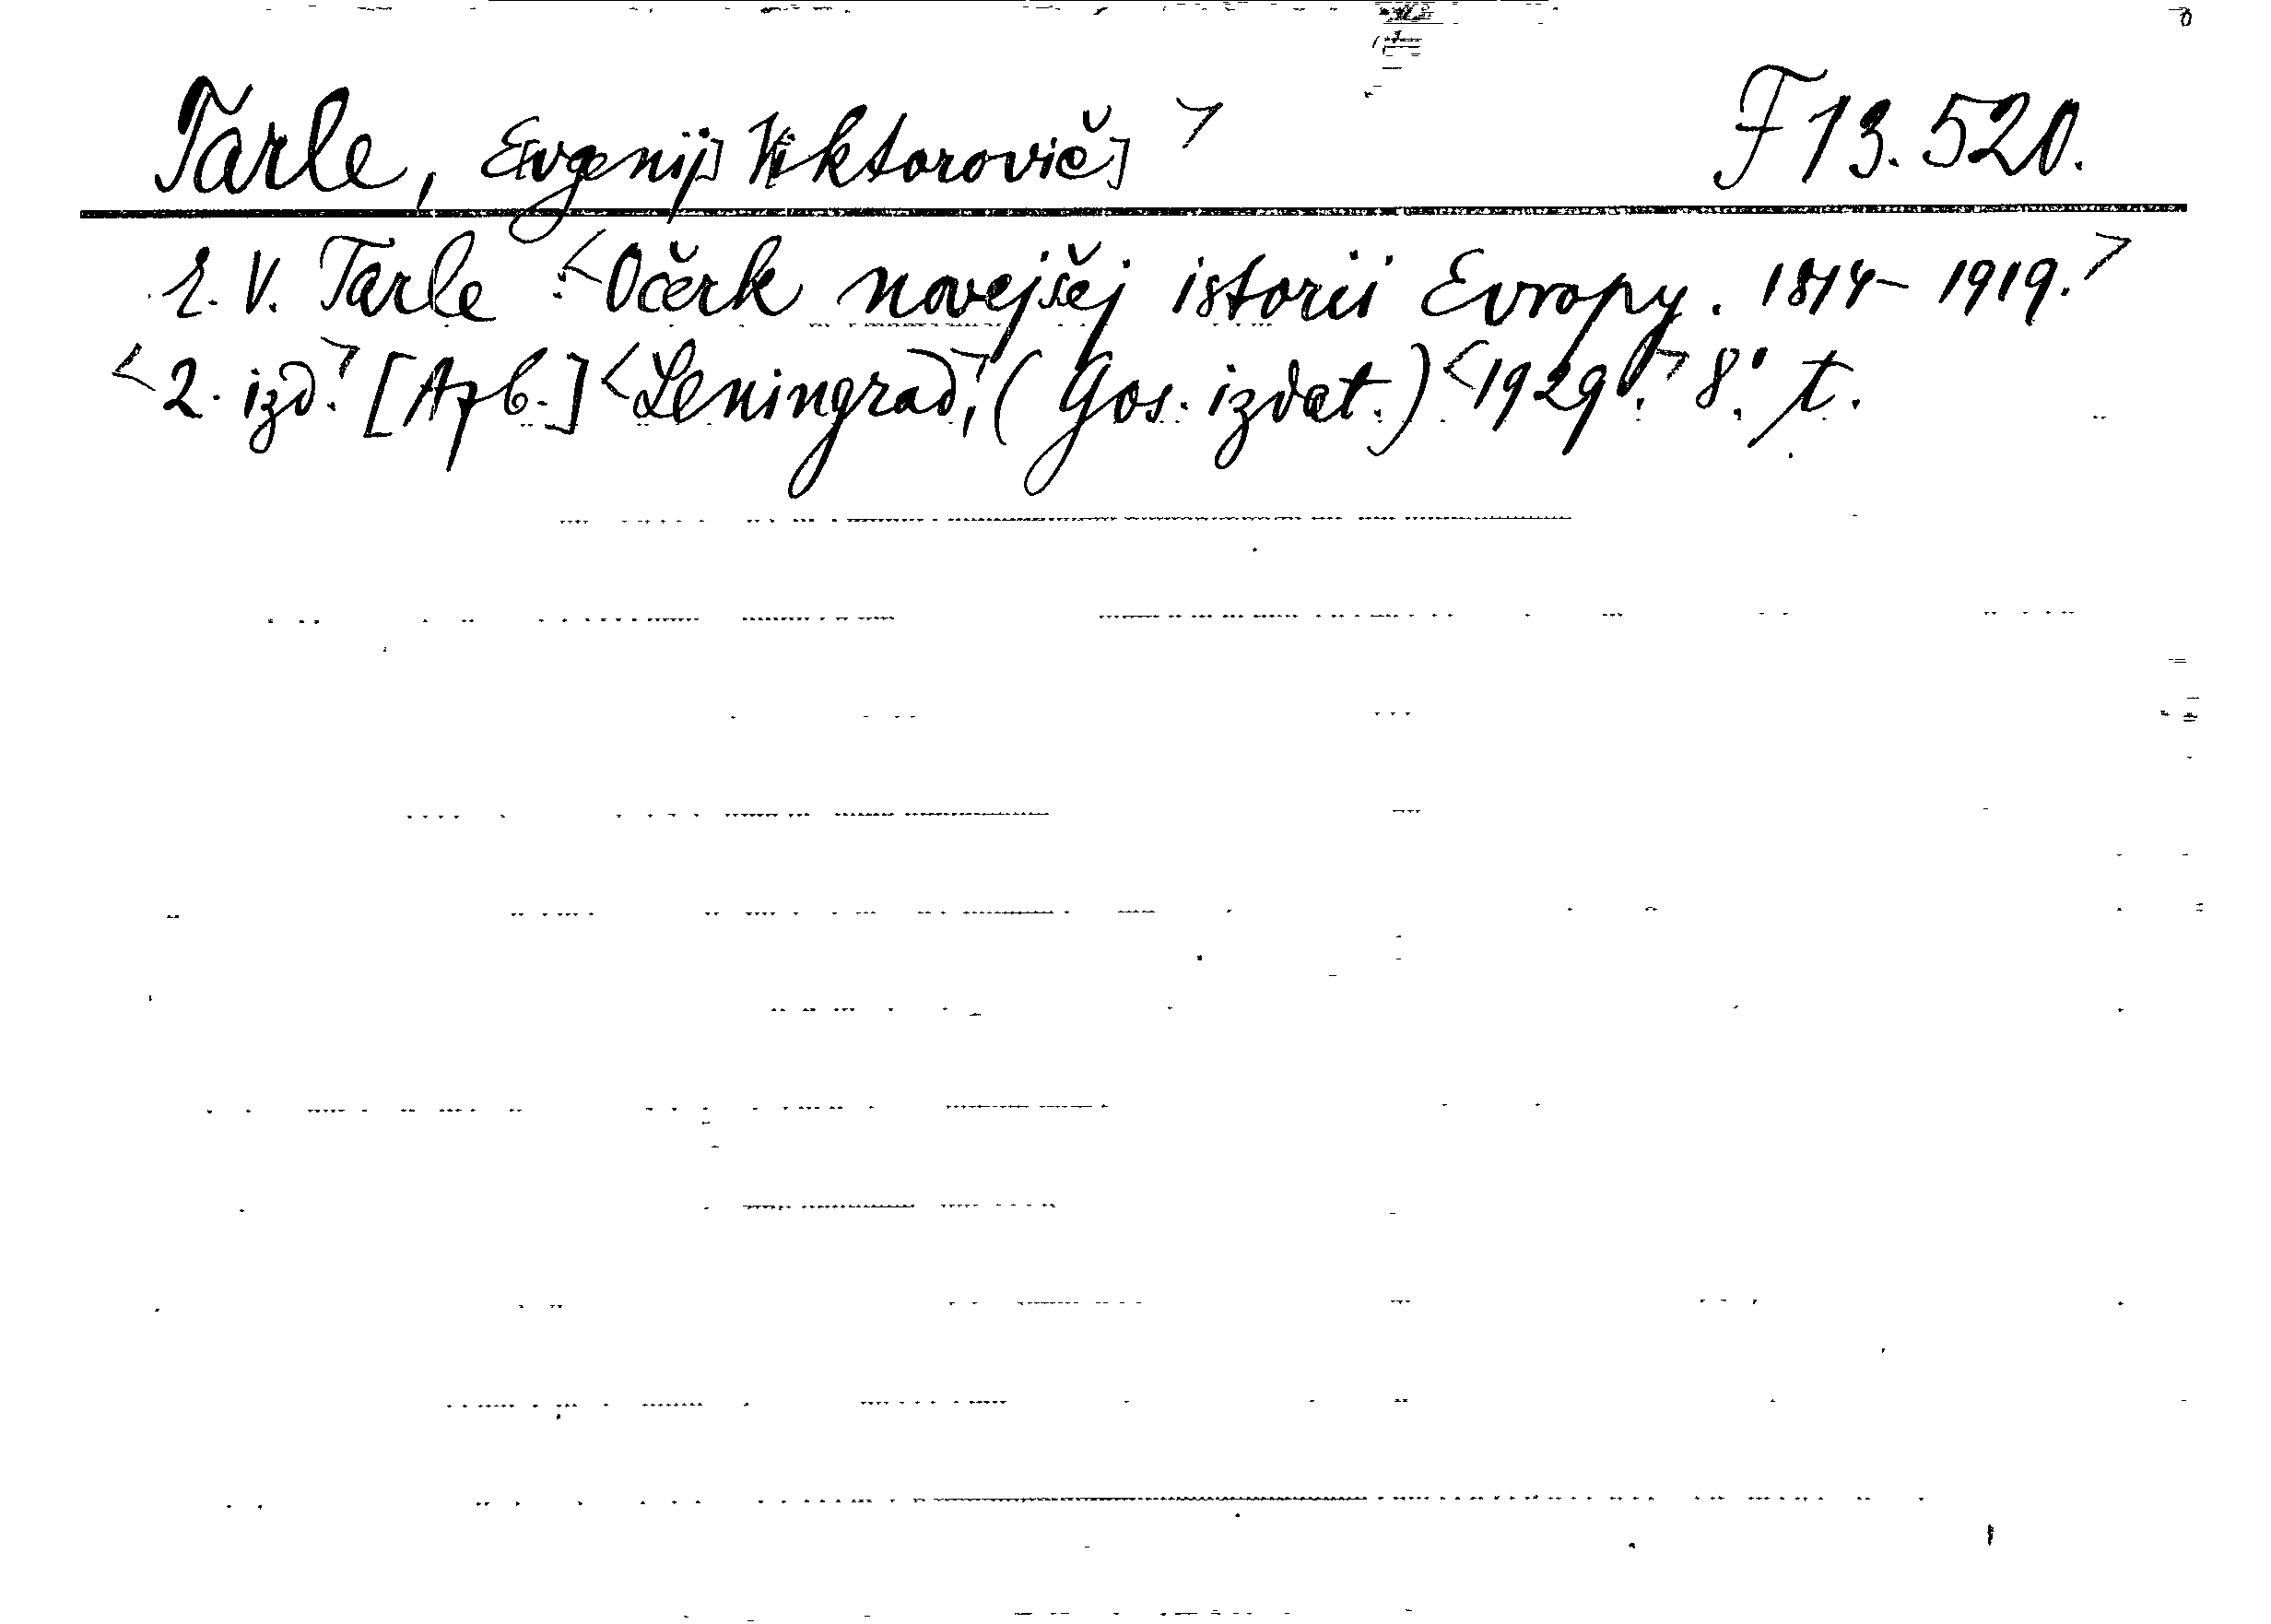 Tarle, E[vgenij] V[iktorovič] > F 13.520.
E. V. Tarle : <Očerk novejšej istorii Evropy. 1814-1919.>
<2. izd.> [Azb.] <Leningrad>, (Gos. izdat.) <1929.> 8°. t.